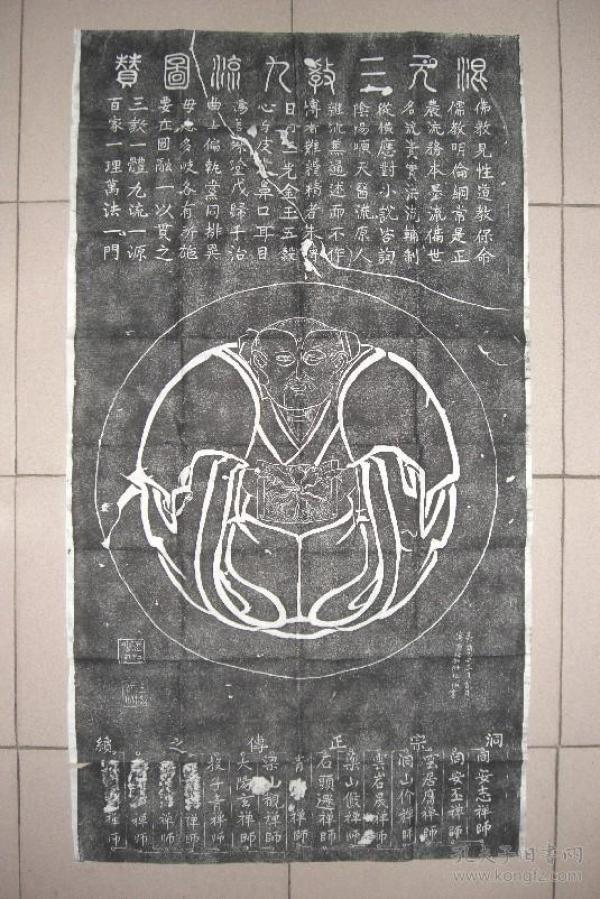 混元三教九流圖贊
佛教見性道教保命
儒教明倫綱常是正
農流務本墨流備世
名流責實法流輔制
從橫應對小說咨詢
陰陽順天醫流原人
雜流兼通述而不作
博者難精精者未博
日月三光金玉五穀
心身皮膚鼻口耳目
為善殊途咸歸于治
曲士偏執黨同排異
毋患多歧各有所施
要在圓融一以貫之
三教一體九流一源
百家一理萬法一門
洞宗正傳之續
同安志禪師
同安丕禪師
雲居膺禪師
洞山价禪師
雲岩晟禪師
藥山儼禪師
石頭遷禪師
青禪師
梁山觀禪師
大陽玄禪師
投子青禪師
禪師
禪師
禪師
禪師
孔夫子旧书网
www.kongfz.com